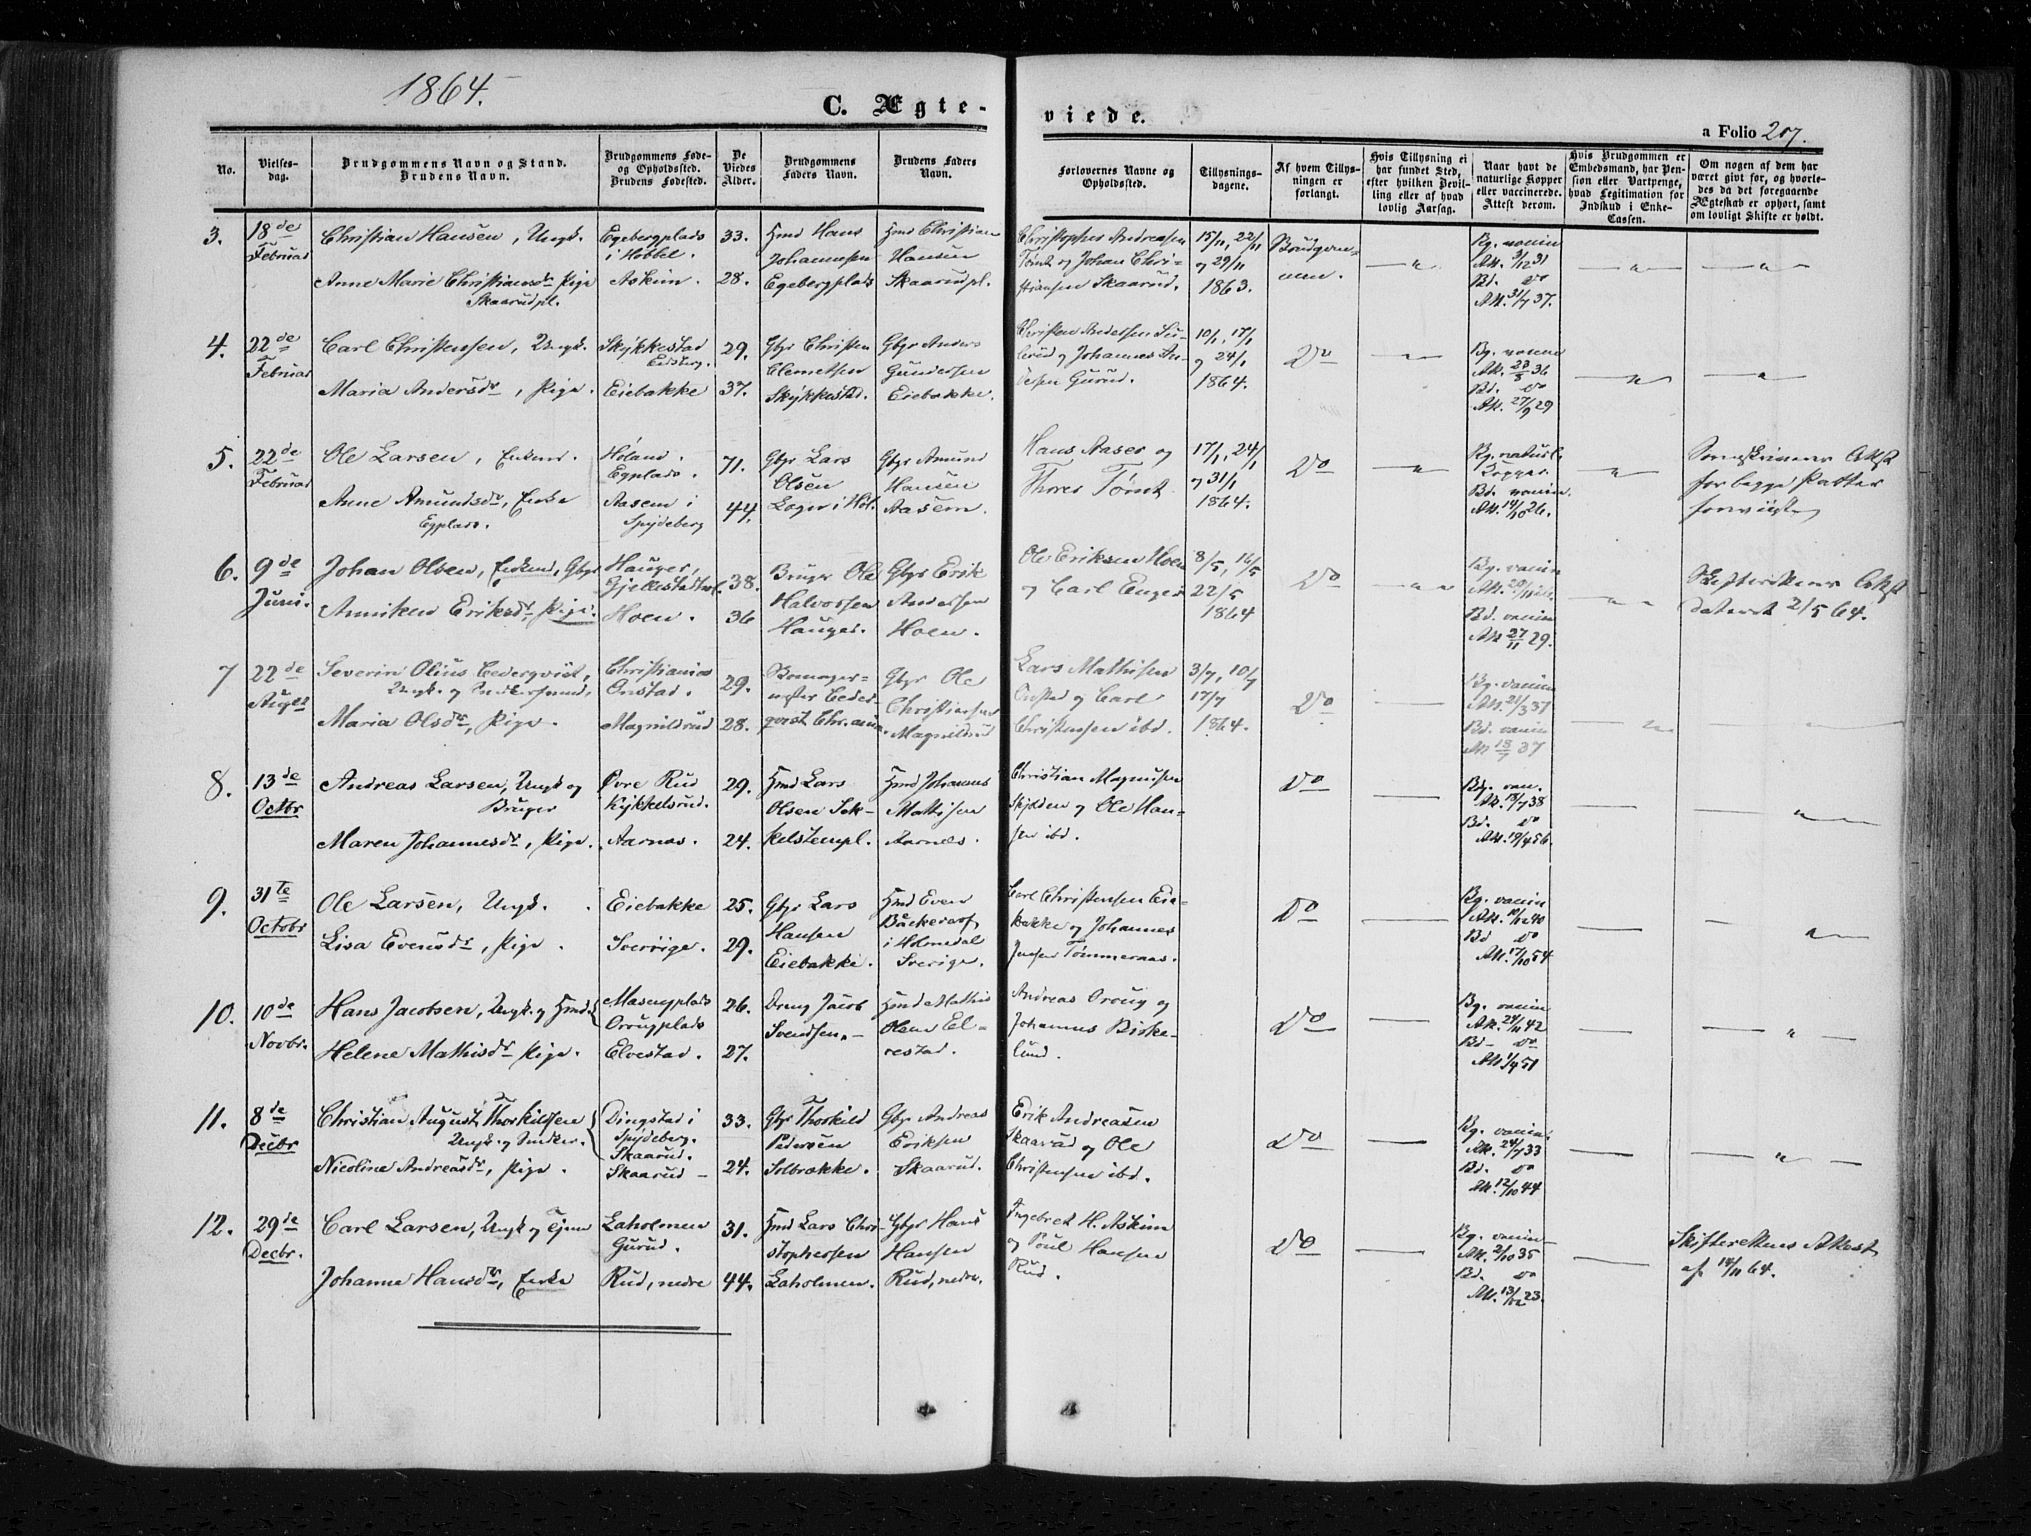 1864.
C. Ægte-
viede.
a Folio 207.
No.
Vielses-
dag.
Brudgommens Navn og Stand.
Brudens Navn.
Brudgommens Føde-
og Opholdssted.
Brudens Fødested.
De
Viedes
Alder.
Brudgommens
Faders Navn.
Brudens Faders
Navn.
Forlovernes Navne og
Opholdssted.
Tillysnings-
dagene.
Af hvem Tillys-
ningen er
forlangt.
Hvis Tillysning ei
har fundet Sted,
efter hvilken Bevil-
ling eller af hvad
lovlig Aarsag.
Naar havt de
naturlige Kopper
eller vaccinerede.
Attest derom.
Hvis Brudgommen er
Embedsmand, har Pen-
sion eller Vartpenge,
hvad Legitimation for
Indskud i Enke-
Cassen.
Om nogen af dem har
været givt før, og hvorle-
des da det foregaaende
Ægteskab er ophørt, samt
om lovligt Skifte er holdt.
3.
18de
Februar
Christian Hansen, Ungk.
Anne Marie Christiansdr Pige
Skaarudpl.
Egebergplads
i Hobbel.
Askim.
33.
28.
Hmd Hans
Johannsen
Egebergplads
Hmd Christian
Hansen
Skaarudpl.
Christopher Andreasen
Tømt og Johan Chri-
stiansen Skaarud.
15/11, 22/11
og 29/11
1863.
Brudgom-
men.
Bg. vaccin
Att. 3/12 31
Bd. do
Att. 31/7 37.
4.
22de
Februar
Carl Christensen, Ungk.
Maria Andersdr, Pige.
Skykkestad
Eidsberg.
Eiebakke
29.
37.
Gbr Christen
Clemetsen
Skykkestad.
Gbr Anders
Gundersen
Eiebakke.
Christen Andersen
og Johannes An-
dersen Gurud.
10/1, 17/1
og 24/1
1864.
Do
Bg. vaccin
Att. 23/8 36
Bd. do
Att. 27/9 29
5.
22de
Februar
Ole Larsen, Enkem.
Anne Amundsdr, Enke
Egplads.
Høland.
Egplads.
Aasem i
Spydeberg
71.
44.
Gbr Lars
Olsen
Loger i Høl.
Gbr Amund
Hansen
Aasem.
Hans Aaser og
Thores Tømt
17/1, 24/1
og 31/1
1864.
Do
Bg. naturl.
Kopper
Bd. vaccin.
Att. 14/10 26.
Sorenskriverens Attest
for begge Parter
forevist
6.
9de
Juni.
Johan Olsen, Enkem, Gbr
Anniken Eriksdr, Pige.
Hauger,
Hoen.
38.
36
Bruger Ole
Halvorsen
Hauger.
Gbr Erik
Andersen
Hoen.
Ole Eriksen Hoen
og Carl Enger
8/5, 16/5
22/5
1864
Do
Bg. vaccin
Bd. vaccin
Att 27/11 29.
Skifterettens Attest
dateret 2/5 64.
7
22de
August
Severin Olius Cederqvist,
Maria Olsdr, Pige.
Christiania
Onstad.
Magnildrud
29.
28.
Gbr Ole
Christiansen
Magnildrud
Lars Mathisen
Onstad og Carl
Christensen ibd.
3/7, 10/7
17/7
1864.
Do
Bg. vaccin
Att. 21/3 37
Bd. vaccin
Att 18/7 37
8.
13de
Octbr
Andreas Larsen, Ungk og
Bruger
Maren Johannesdr, Pige.
Øvre Rud
Kykkelsrud.
Aarnes.
29.
24.
Hmd Lars
Olsen Sek-
kelstenpl.
Hmd Johannes
Mathisen
Aarnes.
Christian Magnusen
Skjolden og Ole Han-
sen ibd.
Do
Bg. vac.
Att. 18/7 38
Bd. do
Att. 19/4 56.
9.
31te
Octobr
Ole Larsen, Ungk.
Lisa Evensdr, Pige.
Eiebakke
Sverrige.
25.
29.
Gbr Lars
Hansen
Eiebakke.
Hmd Even
i Holmedal
Sverige.
Carl Christensen Eie-
bakke og Johannes
Jensen Tømmeraas.
Do
Bg. vaccin
Att. 10/12 40
Bd do
Att. 17/10 54
10.
10de
Novbr.
Hans Jacobsen, Ungk. og Hmd.
Helene Mathisdr Pige.
Masengplads
Ovrugplads
Elvestad.
26.
27.
Jacob
Svendsen.
Hmd Mathis
Olsen El-
vestad.
Andreas Ovrug og
Johannes Birke-
lund.
Do
Bg. vaccin
Att. 24/11 42
Bd- do
Att 1/9 51
11.
8de
Decbr
Christian August Thorkildsen
Ungk. og Snedker.
Nicoline Andreasdr, Pige.
Dingstad i
Spydeberg.
Skaarud.
Skaarud
33.
24.
Gbr Thorkild
Pedersen
Solbrække.
Gbr Andreas
Eriksen
Skaarud.
Erik Andreasen
Skaarud og Ole
Christensen ibd.
Do
Bg. vaccin
Att. 24/7 33
Bd. do
Att. 12/10 44
12.
29de
Decbr.
Carl Larsen, Ungk og Tjen
Johanne Hansdr, Enke
Laholmen
Gurud.
Rud, nedre
31.
44.
Hmd Lars Chri-
stophersen
Laholmen.
Gbr Hans
Hansen
Rud, nedre.
Ingebret H. Askim
og Poul Hansen
Rud.
Do
Bg. vaccin
Att. 2/10 35
Bd. do
Att. 13/12 23.
Skifterettens Attest
af 14/11 64.